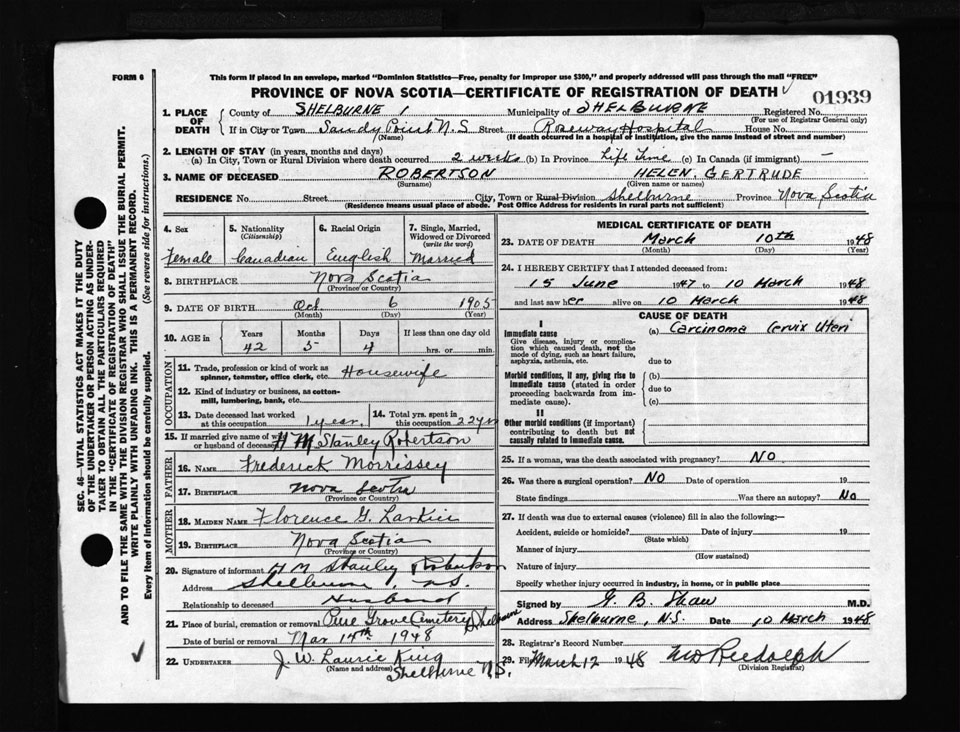 FORM 6
This form if placed in an envelope, marked "Dominion Statistics—Free, penalty for improper use $300," and properly addressed will pass through the mail "FREE"
PROVINCE OF NOVA SCOTIA—CERTIFICATE OF REGISTRATION OF DEATH
01939
1. PLACE OF DEATH County of SHELBURNE Municipality of SHELBURNE Registered No.
(For use of Registrar General only)
If in City or Town Sandy Point N.S Street Roseway Hospital House No.
(Name) (If death occurred in a hospital or institution, give the name instead of street and number)
2. LENGTH OF STAY (in years, months and days)
(a) In City, Town or Rural Division where death occurred 2 weeks (b) In Province Life Time (c) In Canada (if immigrant) —
3. NAME OF DECEASED ROBERTSON HELEN GERTRUDE
(Surname) (Given name or names)
RESIDENCE No. Street City, Town or Rural Division Shelburne Province Nova Scotia
(Residence means usual place of abode. Post Office Address for residents in rural parts not sufficient)
SEC. 46—VITAL STATISTICS ACT MAKES IT THE DUTY
OF THE UNDERTAKER OR PERSON ACTING AS UNDER-
TAKER TO OBTAIN ALL THE PARTICULARS REQUIRED
IN THE "CERTIFICATE OF REGISTRATION OF DEATH"
AND TO FILE THE SAME WITH THE DIVISION REGISTRAR WHO SHALL ISSUE THE BURIAL PERMIT.
WRITE PLAINLY WITH UNFADING INK. THIS IS A PERMANENT RECORD.
Every item of information should be carefully supplied. (See reverse side for instructions.)
4. Sex 5. Nationality (Citizenship) 6. Racial Origin 7. Single, Married, Widowed or Divorced (write the word)
Female Canadian English Married
8. BIRTHPLACE Nova Scotia
(Province or Country)
9. DATE OF BIRTH Oct 6 1905
(Month) (Day) (Year)
10. AGE in Years Months Days If less than one day old
42 5 4 hrs. or min.
OCCUPATION
11. Trade, profession or kind of work as spinner, teamster, office clerk, etc. Housewife
12. Kind of industry or business, as cotton-mill, lumbering, bank, etc.
13. Date deceased last worked at this occupation 1 year. 14. Total yrs. spent in this occupation 22 yrs
15. If married give name of wife or husband of deceased H M Stanley Robertson
FATHER
16. NAME Frederick Morrissey
17. BIRTHPLACE Nova Scotia
(Province or Country)
MOTHER
18. MAIDEN NAME Florence G. Larkin
19. BIRTHPLACE Nova Scotia
(Province or Country)
20. Signature of informant H M Stanley Robertson
Address Shelburne, N.S.
Relationship to deceased Husband
21. Place of burial, cremation or removal Pine Grove Cemetery Shelburne
Date of burial or removal Mar 14th 1948
22. UNDERTAKER J. W. Laurie King
(Name and address) Shelburne N.S.
MEDICAL CERTIFICATE OF DEATH
23. DATE OF DEATH March 10th 1948
(Month) (Day) (Year)
24. I HEREBY CERTIFY that I attended deceased from:
15 June 1947 to 10 March 1948
and last saw her alive on 10 March 1948
CAUSE OF DEATH
I
Immediate cause (a) Carcinoma Cervix Uteri
Give disease, injury or complica-
tion which caused death, not the
mode of dying, such as heart failure,
asphyxia, asthenia, etc. due to
Morbid conditions, if any, giving rise to (b)
immediate cause (stated in order due to
proceeding backwards from im-
mediate cause). (c)
II
Other morbid conditions (if important)
contributing to death but not
causally related to immediate cause.
25. If a woman, was the death associated with pregnancy? NO.
26. Was there a surgical operation? NO Date of operation 19
State findings Was there an autopsy? No
27. If death was due to external causes (violence) fill in also the following:—
Accident, suicide or homicide? Date of injury 19
(State which)
Manner of injury
(How sustained)
Nature of injury
Specify whether injury occurred in industry, in home, or in public place
Signed by G. B. Shaw M.D.
Address Shelburne, N.S. Date 10 March 1948
28. Registrar's Record Number
29. Filed March 12 1948
(Division Registrar)